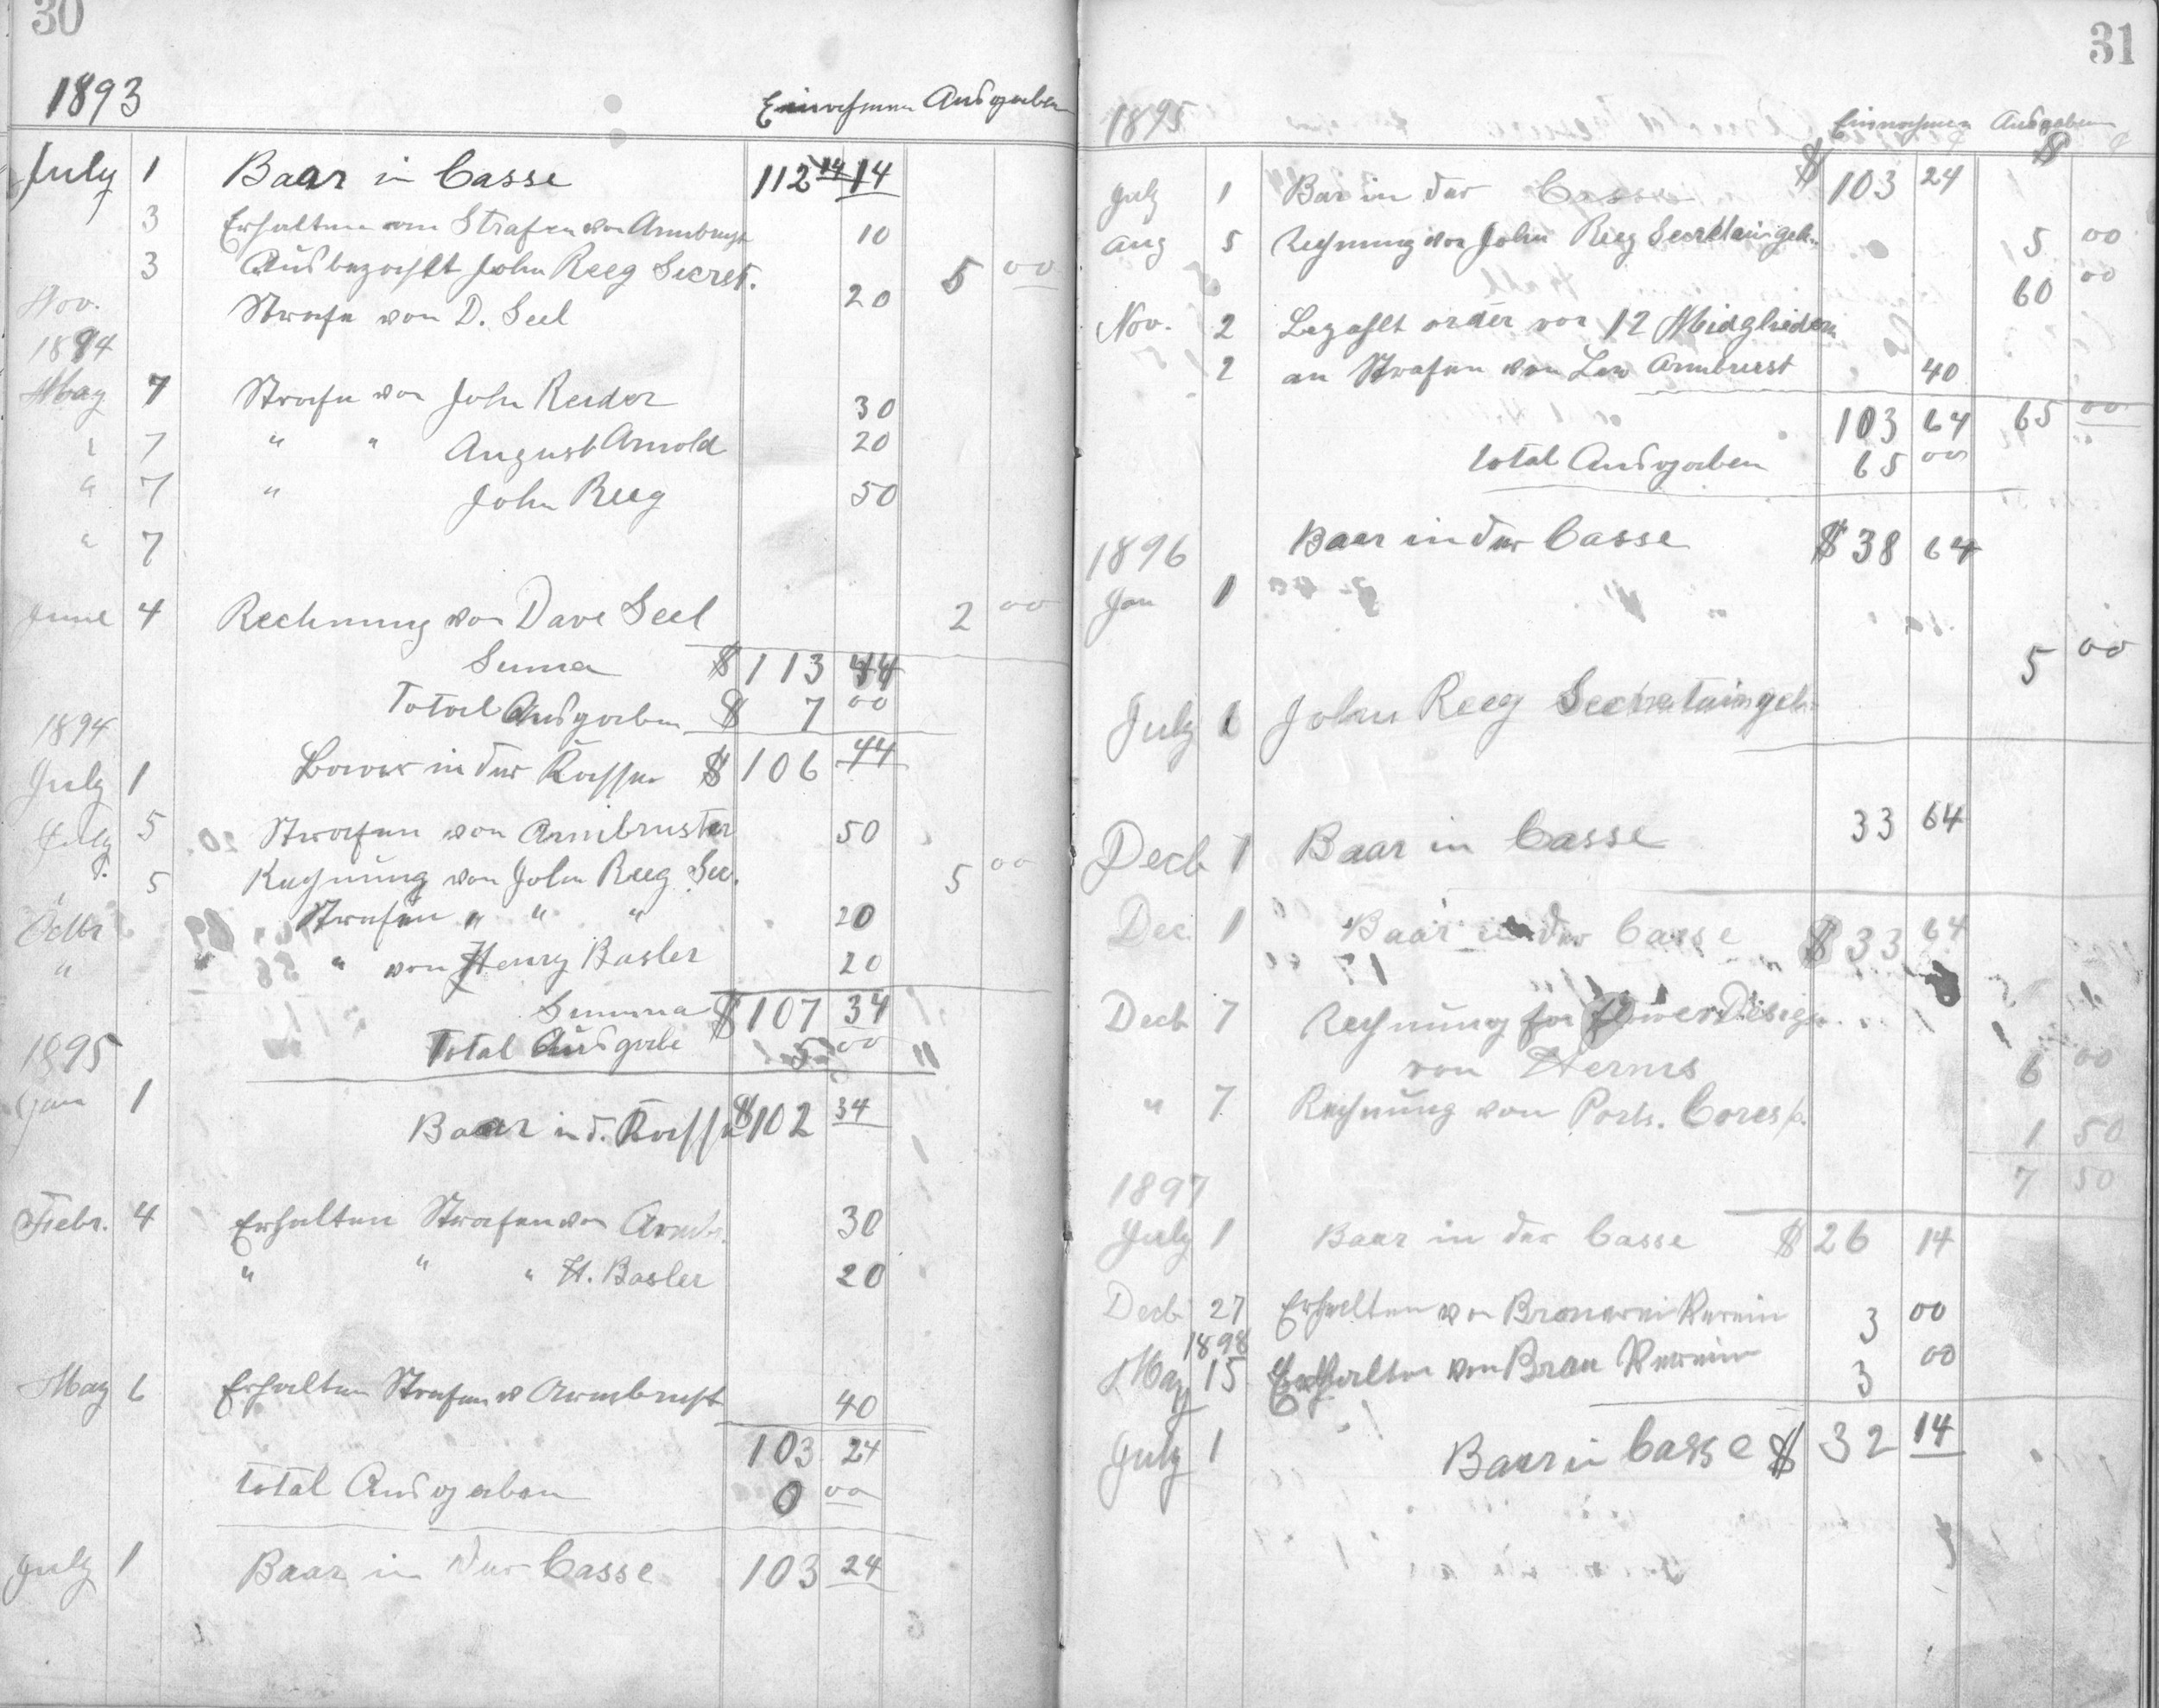 30
1893 Einnahmen Ausgaben
July 1 Baar in Casse 112 14 14
3 Erhalten von Strafen von Armbrust 10
3 Ausbezahlt John Reeg Secret. 5 00
Nov. Strafe von D. Seel 20
1894
May 7 Strafe von John Reider 30
" 7 " " August Arnold 20
" 7 " John Reeg 50
" 7
June 4 Rechnung von Dave Seel 2 00
Suma $ 113 44
Total Ausgaben $ 7 00
1894
July 1 Baar in der Kasse $ 106 44
July 5 Strafen von Armbruster 50
" 5 Rechnung von John Reeg Sec. 5 00
Octbr Strafen " " " 20
" " von Henry Basler 20
Summa $ 107 34
Total Ausgabe 5 00
1895
Jan 1 Baar in d. Kasse $ 102 34
Febr. 4 Erhalten Strafen von Armbr. 30
" " " H. Basler 20
May 6 Erhalten Strafen v Armbrust 40
103 24
total Ausgaben 0 00
July 1 Baar in der Casse 103 24
31
1895 Einnahmen Ausgaben
$ ¢ $ ¢
July 1 Bar in der Casse 103 24
Aug 5 Rechnung von John Reeg Secretairgeh. 5 00
60 00
Nov. 2 Bezahlt order vor 12 Midglieder
2 an Strafen von Lew Armbrust 40
103 64 65 00
total Ausgaben 65 00
Baar in der Casse $ 38 64
1896
Jan 1
5 00
July 1 John Reeg Secretairgeh.
Decb 1 Baar in Casse 33 64
Dec. 1 Baar in der Casse $ 33 64
Decb 7 Rechnung for flower Design
von Herms 6 00
" 7 Rechnung von Ports. Coresp. 1 50
7 50
1897
July 1 Baar in der Casse $ 26 14
Decb 27 Erhalten von Brauerei Verein 3 00
1898
May 15 Erhalten von Brau Verein 3 00
July 1 Baar in Casse $ 32 14